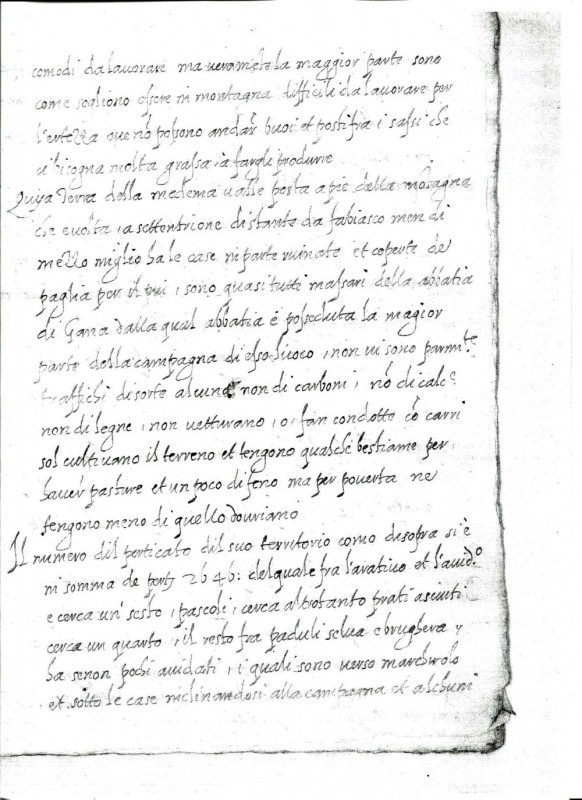 comodi da lauorare ma veramẽte la maggior parte sono
come sogliono essere in montagna difficili da lauorare per
l'ertezza oue nõ possono andar buoi et posti fra i sassi che
ui bisogna molta grassa à fargli produrre
terra della medema ualle posta a piè della montagna
che è uolta a settentrione distante da fabiasco men di
mezzo miglio ha le case in parte ruinate et coperte de
paglia per il piu, sono quasi tutti massari della abbatia
di Gana dalla qual abbatia è posseduta la magior
parte della campagna di esso luoco, non ui sono parim.te
traffichi di sorte alcuna non di carboni, nõ di calc.e
non di legne, non uetturano, o, fan condotte cõ carri
sol cultiuano il terreno et tengono qualche bestiame per
hauer pasture et un poco di feno ma per pouerta ne
tengono meno di quello douriano
Il numero dil perticato dil suo territorio como di sopra si è
in somma de pert. 2646: del quale fra l'aratiuo et l'auid.o
è cerca un sesto, pascoli, cerca altrotanto prati asciuti
cerca un quarto, il resto fra paduli selua e brughera
ha senon pochi auidati, i quali sono uerso marchirolo
et sotto le case inclinandosi alla campagna et alchuni